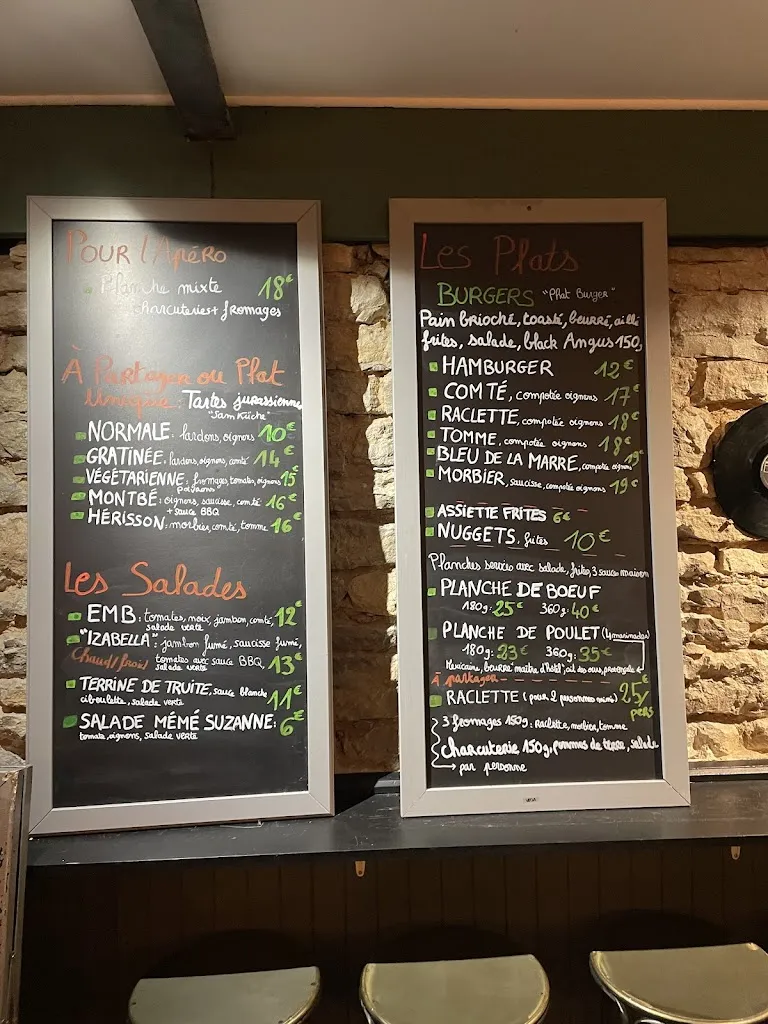 Pour l'Apéro
Planche mixte 18€
charcuteries + fromages
À Partager ou Plat
Unique: Tartes jurassiennes
"Jam Küche"
NORMALE: lardons, oignons 10€
GRATINÉE: lardons, oignons, comté 14€
VÉGÉTARIENNE: fromages, tomates, oignons 15€
poivrons
MONTBÉ: oignons, saucisse, comté 16€
+ sauce BBQ
HÉRISSON: morbier, comté, tomme 16€
Les Salades
EMB: tomates, noix, jambon, comté, 12€
salade verte
"IZABELLA": jambon fumé, saucisse fumé,
Chaud/froid tomates avec sauce BBQ, 13€
salade verte
TERRINE DE TRUITE, sauce blanche 11€
ciboulette, salade verte
SALADE MÉMÉ SUZANNE: 6€
tomate, oignons, salade verte
Les Plats
BURGERS "Phat Burger"
Pain brioché, toasté, beurré, aillé
frites, salade, black Angus 150g
HAMBURGER 12€
COMTÉ, compotée oignons 17€
RACLETTE, compotée oignons 18€
TOMME, compotée oignons 18€
BLEU DE LA MARRE, compotée oignons 19€
MORBIER, saucisse, compotée oignons 19€
ASSIETTE FRITES 6€
NUGGETS, frites 10€
Planches servies avec salade, frites, 3 sauces maison
PLANCHE DE BOEUF
180g: 25€ 360g: 40€
PLANCHE DE POULET (4 marinades)
180g: 23€ 360g: 35€
Mexicaine, beurre maître d'hôtel, ail des ours, provençale
À partager
RACLETTE (pour 2 personnes mini) 25€/
pers
3 fromages 150g: raclette, morbier, tomme
Charcuterie 150g, pommes de terre, salade
par personne